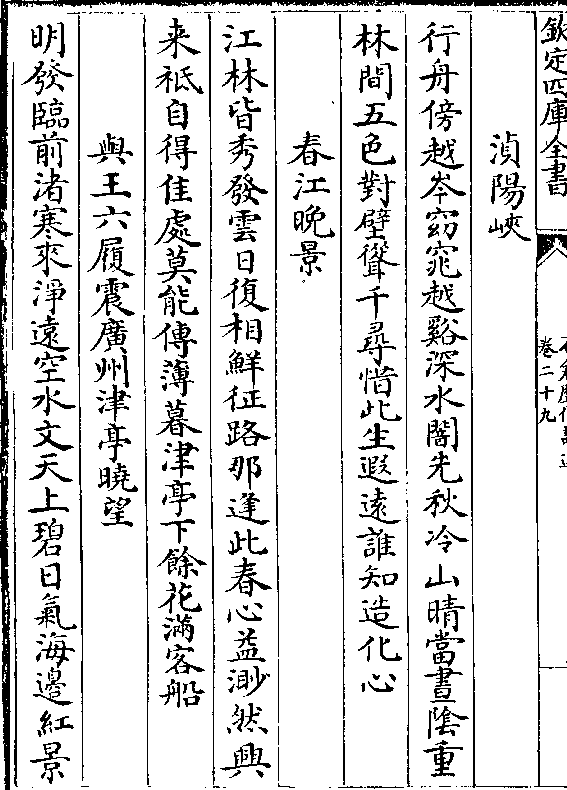 欽定四庫全書
卷二十九
湞陽峽
行舟傍越岑窈窕越谿深水闇先秋冷山晴當晝陰重
林間五色對壁聳千尋惜此生遐遠誰知造化心
春江晚景
江林皆秀發雲日復相鮮征路那逢此春心益渺然興
来祗自得佳處莫能傳薄暮津亭下餘花滿客船
與王六履震廣州津亭曉望
明發臨前渚寒來淨遠空水文天上碧日氣海邊紅景